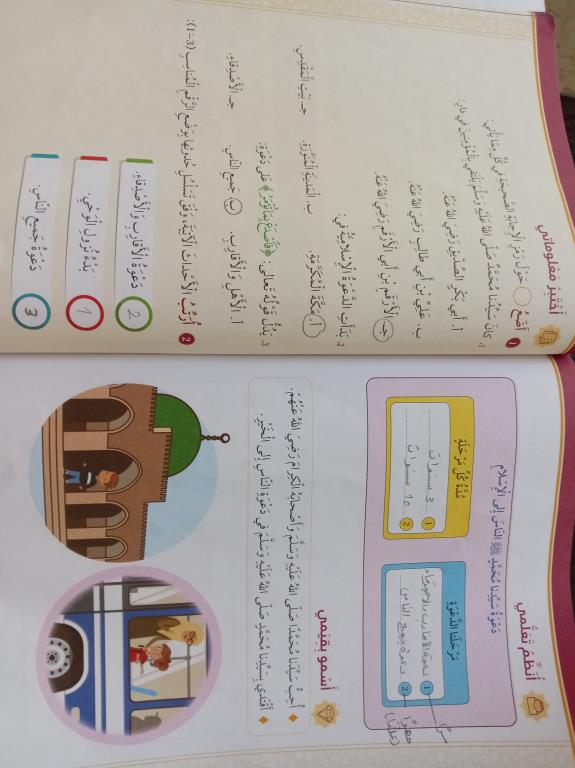 أَخْتَبِرُ مَعْلوماتي
1 أَضَعُ حَوْلَ رَمْزِ الْإِجابَةِ الصَّحيحَةِ في كُلٍّ مِمّا يَأْتي:
1. كانَ سَيِّدُنا مُحَمَّدٌ صَلَّى اللهُ عَلَيْهِ وَسَلَّمَ يَلْتَقي بِالْمُؤْمِنينَ في دارِ:
أ. أَبي بَكْرٍ الصِّدّيقِ رَضِيَ اللهُ عَنْهُ.
ب. عَلِيِّ بْنِ أَبي طالِبٍ رَضِيَ اللهُ عَنْهُ.
جـ. الْأَرْقَمِ بْنِ أَبي الْأَرْقَمِ رَضِيَ اللهُ عَنْهُ.
2. بَدَأَتِ الدَّعْوَةُ الْإِسْلامِيَّةُ في:
أ. مَكَّةَ الْمُكَرَّمَةِ. ب. الْمَدينَةِ الْمُنَوَّرَةِ. جـ. بَيْتِ الْمَقْدِسِ.
3. يَدُلُّ قَوْلُهُ تَعالى: ﴿فَاصْدَعْ بِمَا تُؤْمَرُ﴾ عَلى دَعْوَةِ:
أ. الْأَهْلِ وَالْأَقارِبِ. ب. جَميعِ النّاسِ. جـ. الْأَصْدِقاءِ.
2 أُرَتِّبُ الْأَحْداثَ الْآتِيَةَ، وَفْقَ تَسَلْسُلِ حُدوثِها بِوَضْعِ الرَّقْمِ الْمُناسِبِ (1-3):
2 دَعْوَةُ الْأَقارِبِ وَالْأَصْدِقاءِ.
1 بَدْءُ نُزولِ الْوَحْيِ.
3 دَعْوَةُ جَميعِ النّاسِ.
أُنَظِّمُ تَعَلُّمي
دَعْوَةُ سَيِّدِنا مُحَمَّدٍ ﷺ النّاسَ إِلى الْإِسْلامِ
مَرْحَلَتا الدَّعْوَةِ
1 دعوة الأقارب والأصدقاء سرًّا
2 دعوة جميع الناس جهرًا
(علنًا)
مُدَّةُ كُلِّ مَرْحَلَةٍ
1 3 سنوات
2 10 سنوات
أَسْمو بِقِيَمي
أُحِبُّ سَيِّدَنا مُحَمَّدًا صَلَّى اللهُ عَلَيْهِ وَسَلَّمَ وَأَصْحابَهُ الْكِرامَ رَضِيَ اللهُ عَنْهُمْ.
أَقْتَدي بِسَيِّدِنا مُحَمَّدٍ صَلَّى اللهُ عَلَيْهِ وَسَلَّمَ في دَعْوَةِ النّاسِ إِلى الْخَيْرِ.